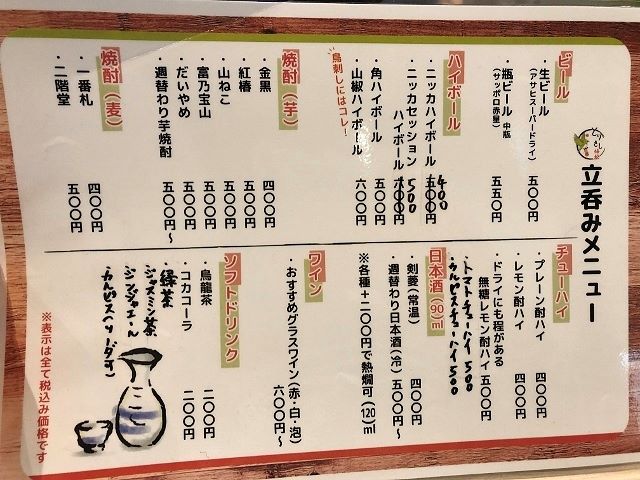 立呑みメニュー
ビール
生ビール
(アサヒスーパードライ) 五〇〇円
・瓶ビール 中瓶
(サッポロ赤星) 五五〇円
ハイボール
・ニッカハイボール 400円
・ニッカセッション
ハイボール 500
・角ハイボール 五〇〇円
・山椒ハイボール 六〇〇円
鳥刺しにはコレ!
焼酎(芋)
・金黒 四〇〇円
・紅椿 五〇〇円
・山ねこ 五〇〇円
・富乃宝山 五〇〇円
・だいやめ 五〇〇円
・週替わり芋焼酎 五〇〇円〜
焼酎(麦)
・一番札 四〇〇円
・二階堂 五〇〇円
チューハイ
・プレーン酎ハイ 四〇〇円
・レモン酎ハイ 四〇〇円
・ドライにも程がある
無糖レモン酎ハイ 五〇〇円
・トマトチューハイ 500
・カルピスチューハイ 500
日本酒(90)ml
・剣菱(常温) 四〇〇円
・週替わり日本酒(冷) 五〇〇円〜
※各種+二〇〇円で熱燗可(120)ml
ワイン
・おすすめグラスワイン(赤・白・泡)
六〇〇円〜
ソフトドリンク
・烏龍茶 二〇〇円
・コカコーラ 二〇〇円
・緑茶
・ジャスミン茶
・ジンジャエール
・カルピス(ソーダ・水)
※表示は全て税込み価格です